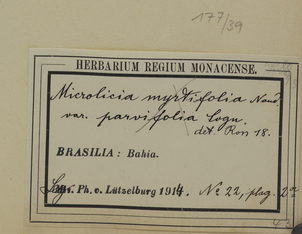 177/39
HERBARIUM REGIUM MONACENSE.
Microlicia myrtifolia Naud.
var. parvifolia Cogn.
det. Ross 18.
BRASILIA: Bahia.
Leg. Dr. Ph. v. Lützelburg 1914. No 22, plag. 2a